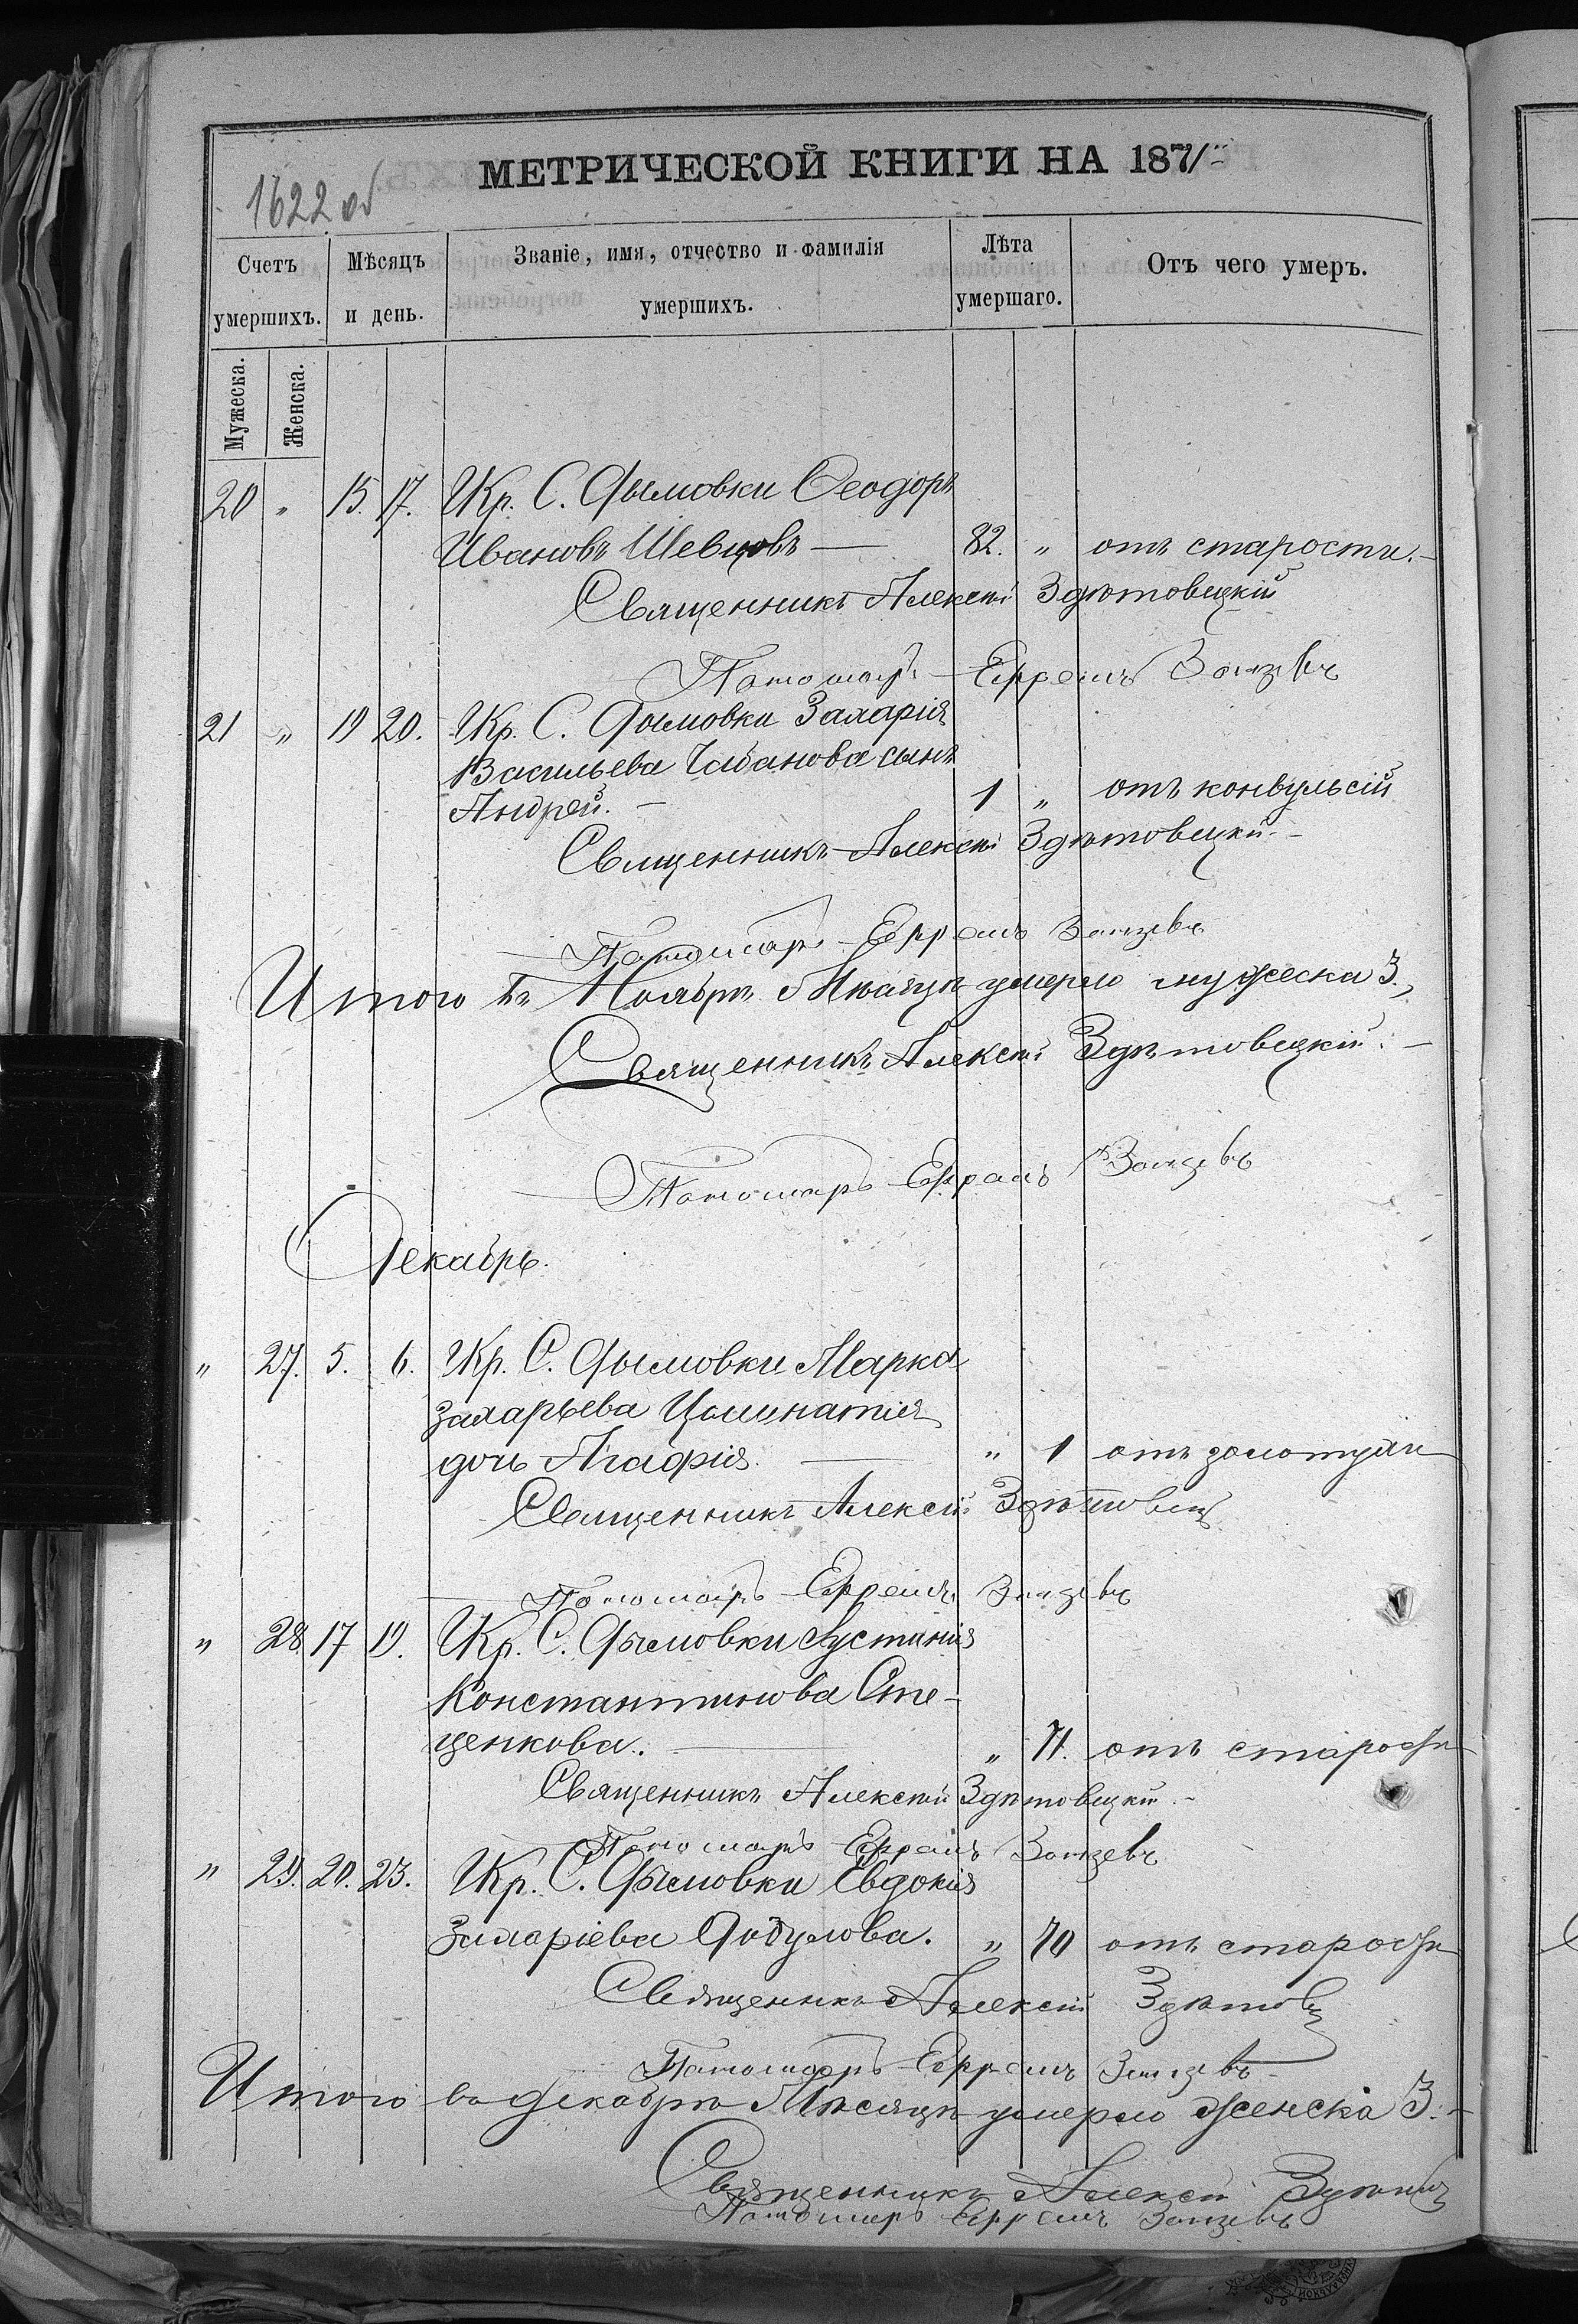 МЕТРИЧЕСКОЙ КНИГИ НА 1871
1622 об
Счетъ умершихъ.
Мѣсяцъ и день.
Званіе, имя, отчество и фамилія умершихъ.
Лѣта умершаго.
Отъ чего умеръ.
Мужеска.
Женска.
20 „ 15. 17. Кр. С. Дымовки Ѳеодоръ
Ивановъ Шевцовъ — 82. „ отъ старости. —
Священникъ Алексѣй Здѣтовецкій
Паномарь Ефремъ Зайцевъ
21 „ 19 20. Кр. С. Дымовки Захарія
Васильева Чабанова сынъ
Андрей. — 1 „ отъ конвульсій
Священникъ Алексѣй Здѣтовецкій —
Паномарь Ефремъ Зайцевъ
Итого въ Ноябрѣ Мѣсяцѣ умерло мужеска 3.,
Священникъ Алексѣй Здѣтовецкій. —
Паномарь Ефремъ Зайцевъ
Декабрь.
„ 27. 5. 6. Кр. С. Дымовки Марка
Захарьева
дочь Агафія. — „ 1 отъ золотухи
Священникъ Алексѣй Здѣтовец
Паномарь Ефремъ Зайцевъ
„ 28. 17 19. Кр. С. Дымовки Іустинія
Константинова Сте-
ценкова. — „ 71. отъ старости
Священникъ Алексѣй Здѣтовецкій —
Паномарь Ефремъ Зайцевъ
„ 29. 20. 23. Кр. С. Дымовки Евдокія
Захаріева „ 70 отъ старости
Священникъ Алексѣй Здѣтов
Паномарь Ефремъ Зайцевъ
Итого въ Декабрѣ Мѣсяцѣ умерло женска 3. —
Священникъ Алексѣй
Паномарь Ефремъ Зайцевъ